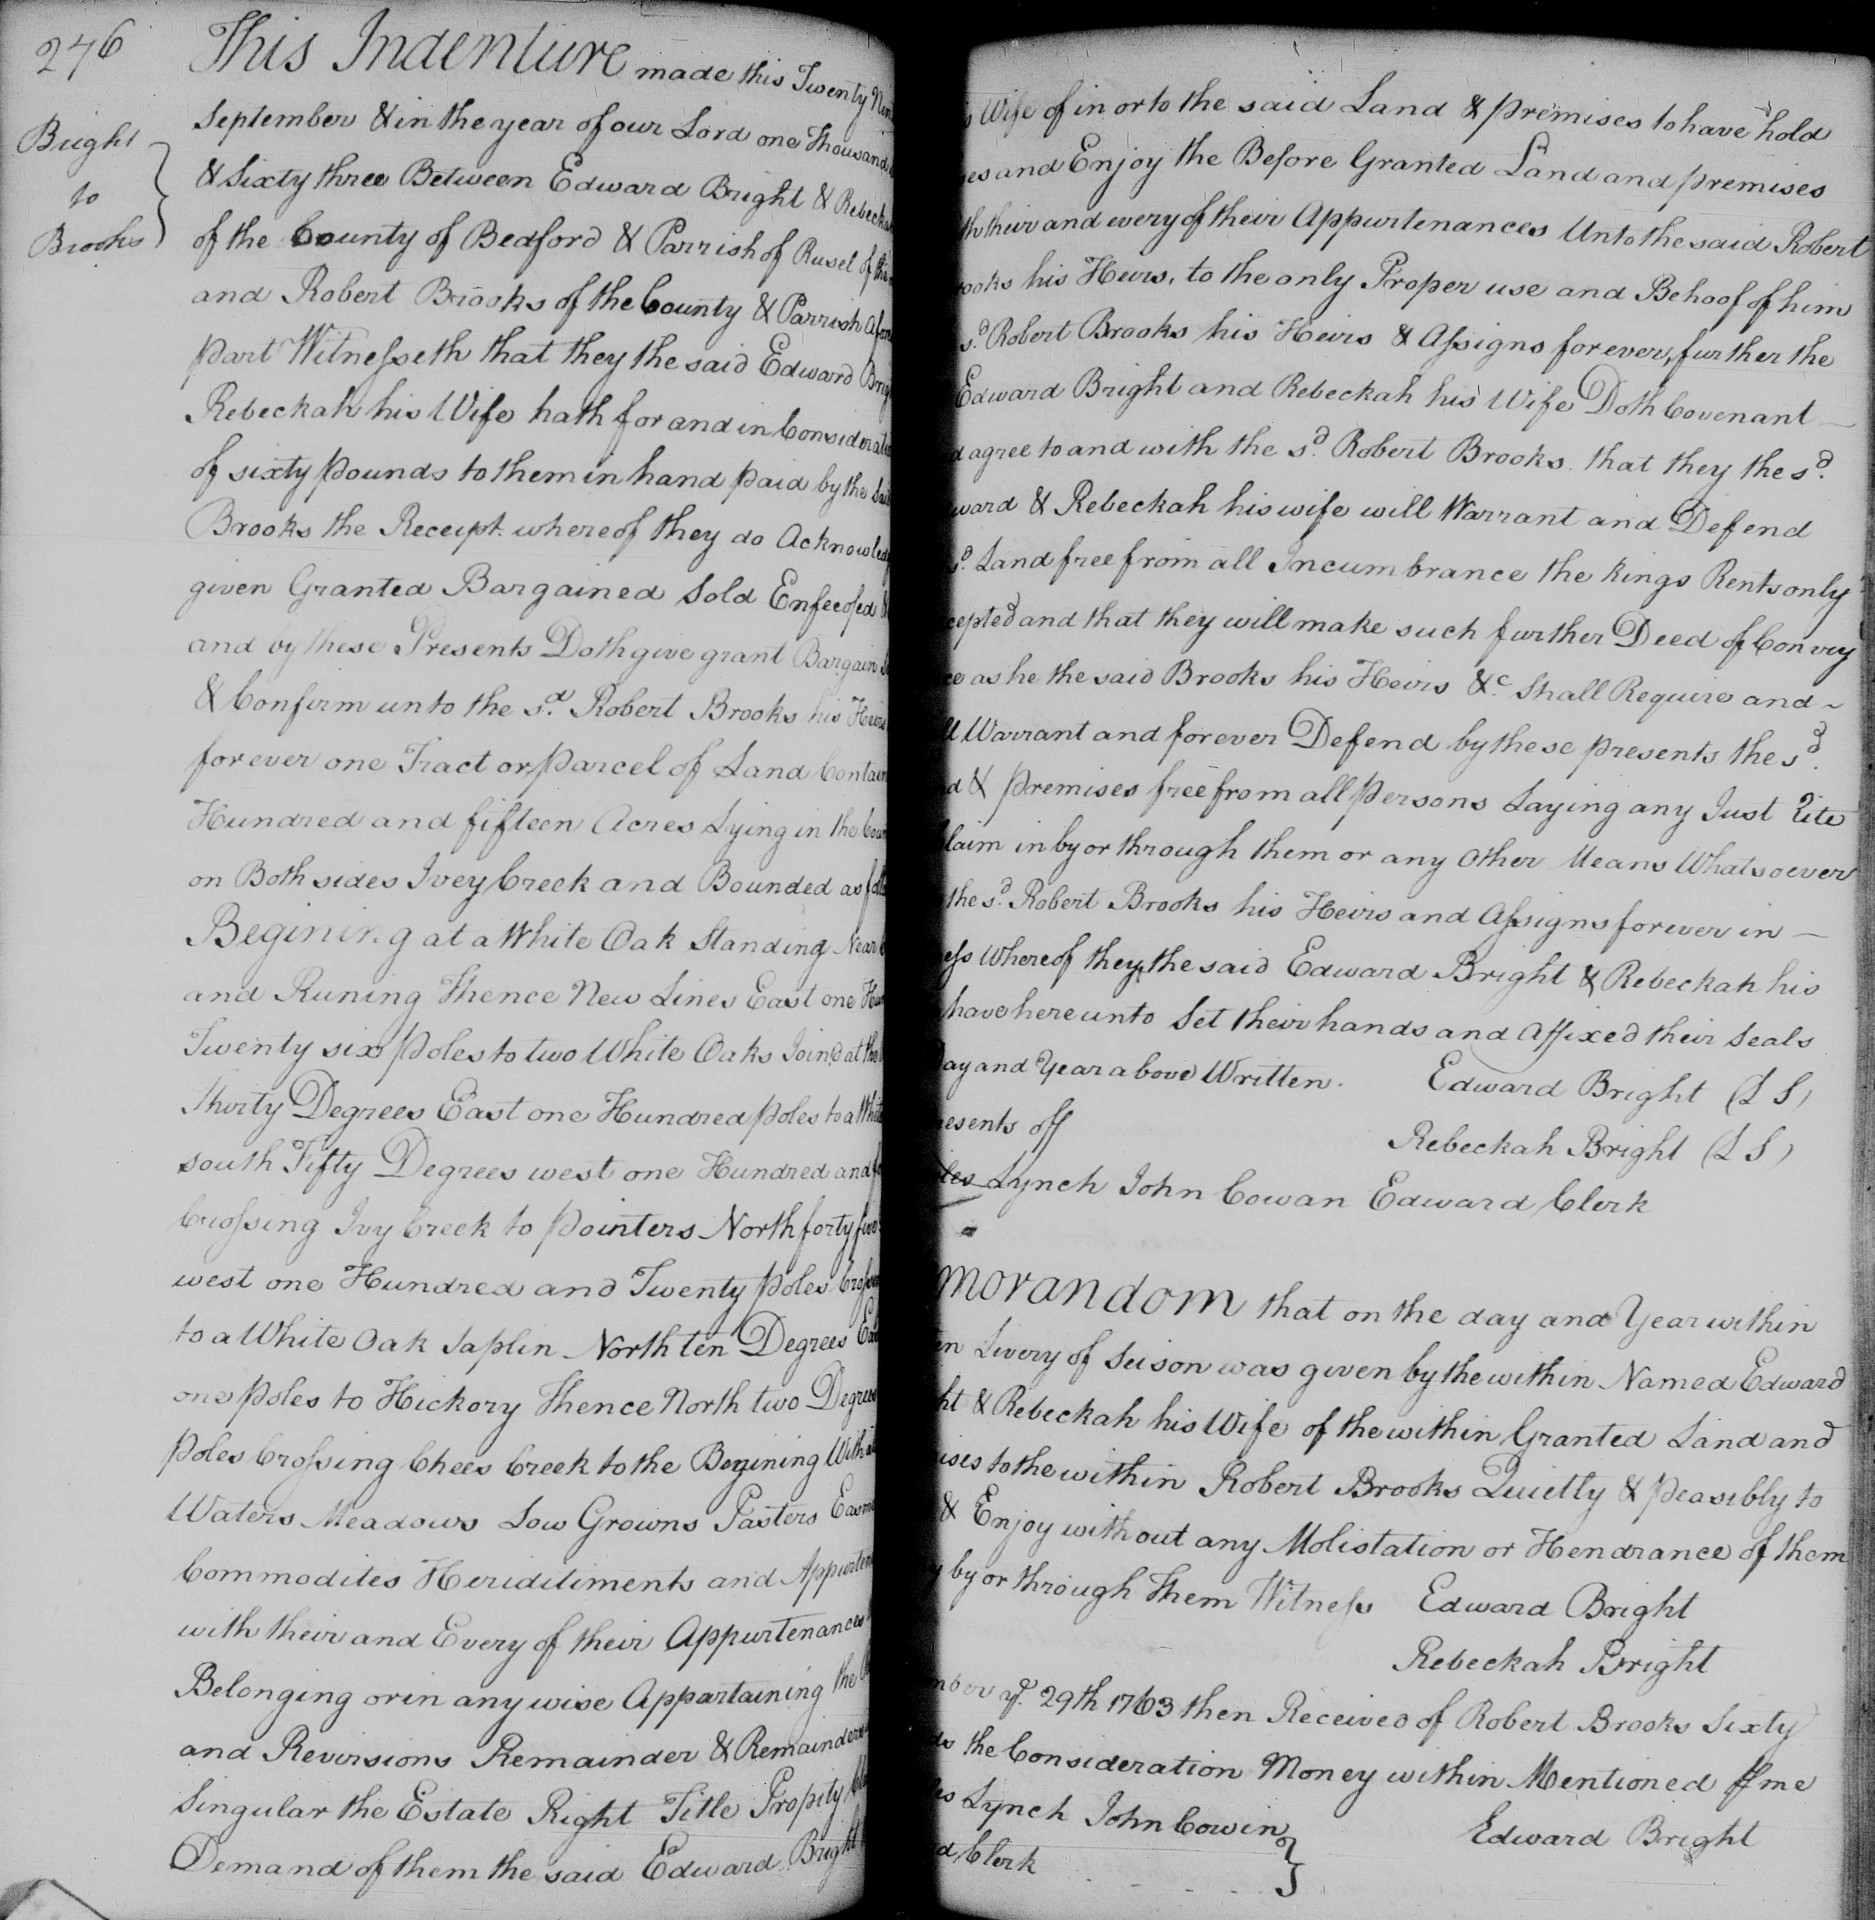 276
This Indenture made this Twenty
September & in the year of our Lord one Thousand
& Sixty three Between Edward Bright & Rebeckah
of the County of Bedford & Parrish of Rusel of
and Robert Brooks of the County & Parrish
part Witnesseth that they the said Edward
Rebeckah his Wife hath for and in
of sixty pounds to them in hand paid by the
Brooks the Receipt whereof they do
given Granted Bargained Sold Enfeeofed
and by these Presents Doth give grant Bargain
& Confirm unto the sd. Robert Brooks his
forever one Tract or parcel of Land
Hundred and fifteen Acres Lying in the
on Both sides Ivey Creek and Bounded as
Begining at a White Oak Standing Near
and Runing Thence New Lines East one
Twenty six poles to two White Oaks Joind at
thirty Degrees East one Hundred poles to a
south Fifty Degrees west one Hundred and
Crossing Ivy Creek to pointers North forty
west one Hundred and Twenty poles
to a White Oak Saplin North ten Degrees
one poles to Hickory Thence North two
poles Crossing Chees Creek to the Begining
Waters Meadows Low Growns Pasters
Commodites Heriditiments and
with their and Every of their Appurtenances
Belonging or in any wise Appartaining the
and Reversions Remainder &
Singular the Estate Right Title Propity
Demand of them the said Edward Bright
Bright
to
Brooks
Wife of in or to the said Land & premises to have hold
and Enjoy the Before Granted Land and premises
their and every of their Appurtenances Unto the said Robert
his Heirs, to the only Proper use and Behoof of him
sd. Robert Brooks his Heirs & Assigns forever, further the
Edward Bright and Rebeckah his Wife Doth Covenant
agree to and with the sd. Robert Brooks that they the sd.
& Rebeckah his wife will Warrant and Defend
Land free from all Incumbrance the kings Rents only
and that they will make such further Deed of Convey
as he the said Brooks his Heirs &c. Shall Require and
Warrant and forever Defend by these presents the sd.
& premises free from all persons Laying any Just Tite
in by or through them or any Other Means Whatsoever
the sd. Robert Brooks his Heirs and Assigns forever in
Whereof they the said Edward Bright & Rebeckah his
have hereunto Set their hands and Affixed their Seals
and Year above Written. Edward Bright (L S)
off Rebeckah Bright (L S)
Lynch John Cowan Edward Clerk
morandom that on the day and Year within
Livery of Seison was given by the within Named Edward
& Rebeckah his Wife of the within Granted Land and
to the within Robert Brooks Quietly & peasibly to
& Enjoy without any Molistation or Hendrance of them
by or through Them Witness Edward Bright
Rebeckah Bright
ye. 29th 1763 then Received of Robert Brooks Sixty
the Consideration Money within Mentioned me
Lynch John Cowin
Edward Bright
Clerk